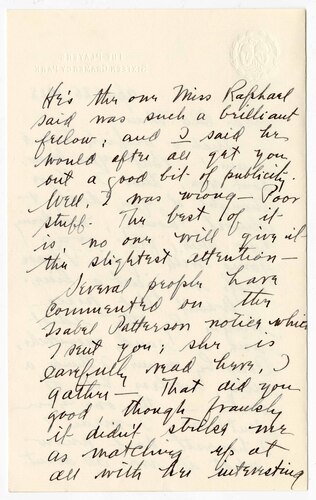 He's the one Miss Raphael
said was such a brilliant
fellow; and I said he
would after all get you
out a good bit of publicity.
Well, I was wrong — Poor
stuff. The best of it
is, no one will give it
the slightest attention —
Several people have
commented on the
Isabel Patterson notice which
I sent you; she is
carefully read here, I
gather — That did you
good though frankly
it didn't strike me
as matching up at
all with her interesting